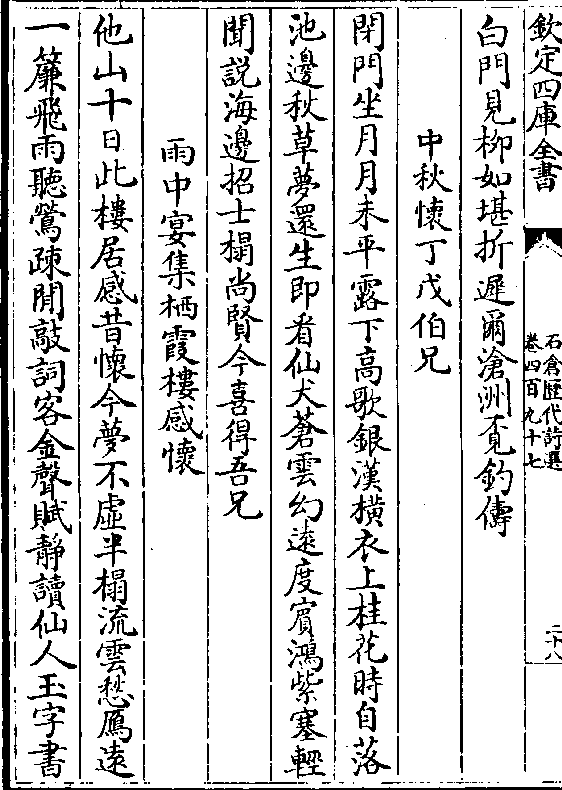 欽定四庫全書
石倉歷代詩選
卷四百九十七
二十八
白門見柳如堪折遲爾滄洲覓釣儔
中秋懷丁戊伯兄
閉門坐月月未平露下高歌銀漢橫衣上桂花時自落
池邊秋草夢還生即看仙犬蒼雲幻遠度賓鴻紫塞輕
聞説海邊招士榻尚賢今喜得吾兄
雨中宴集栖霞樓感懷
他山十日此樓居感昔懷今夢不虛半榻流雲愁鴈遠
一簾飛雨聽鶯疎閒敲詞客金聲賦靜讀仙人玉字書